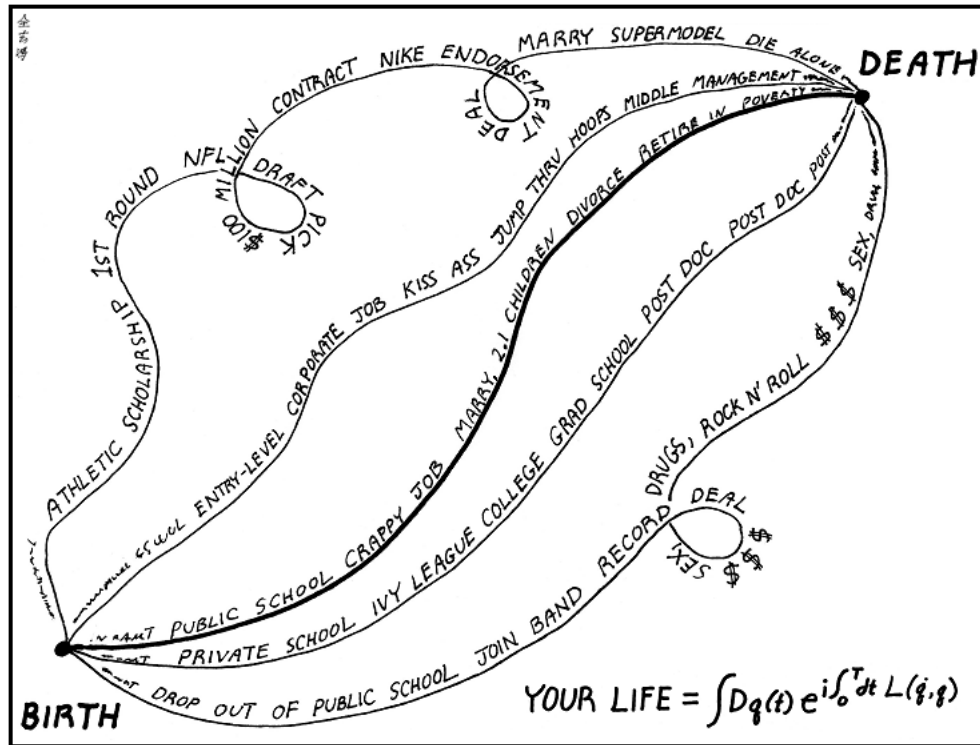 DEATH
ATHLETIC SCHOLARSHIP 1ST ROUND NFL DRAFT PICK $100 MILLION CONTRACT NIKE ENDORSEMENT DEAL MARRY SUPERMODEL DIE ALONE
ENTRY-LEVEL CORPORATE JOB KISS ASS JUMP THRU HOOPS MIDDLE MANAGEMENT
INFANT PUBLIC SCHOOL CRAPPY JOB MARRY, 2.1 CHILDREN DIVORCE RETIRE IN POVERTY
PRIVATE SCHOOL IVY LEAGUE COLLEGE GRAD SCHOOL POST DOC POST DOC POST
DROP OUT OF PUBLIC SCHOOL JOIN BAND RECORD DEAL $ $ $ SEX, DRUGS, ROCK N' ROLL $ $ $ SEX, DRUGS
BIRTH
YOUR LIFE = ∫Dq(t) e^{i∫₀ᵀdt L(q̇,q)}